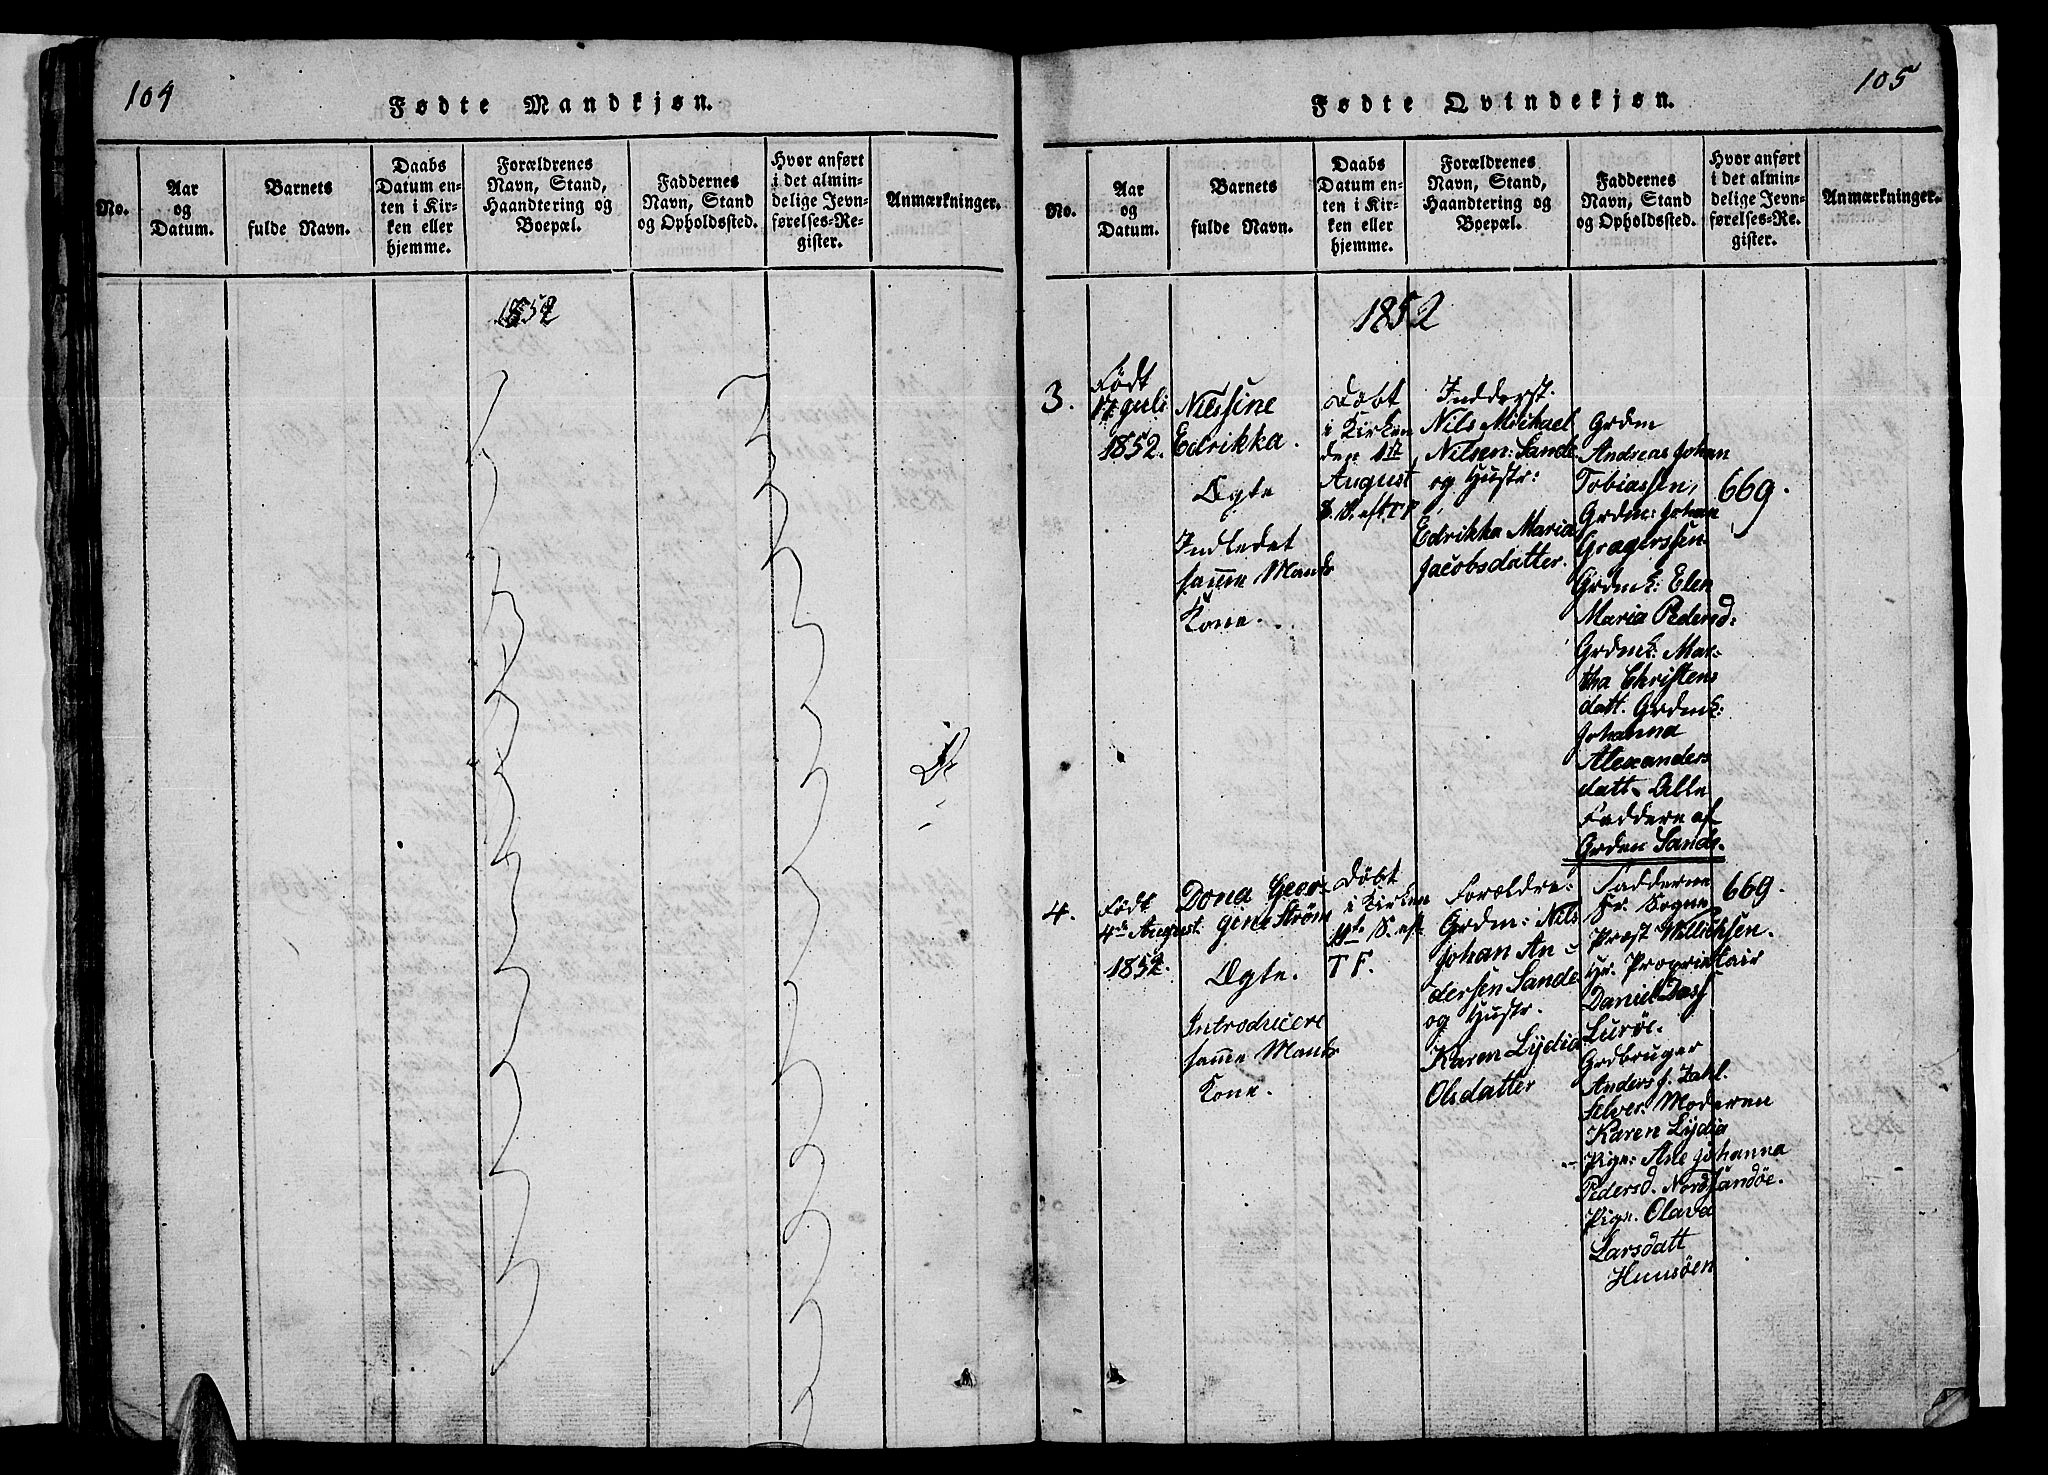 104
Fødte Mandkjøn.
No.
Aar
og
Datum.
Barnets
fulde Navn.
Daabs
Datum en-
ten i Kir-
ken eller
hjemme.
Forældrenes
Navn, Stand,
Haandtering og
Boepæl.
Faddernes
Navn, Stand
og Opholdssted.
Hvor anført
i det almin-
delige Jevn-
førelses-Re-
gister.
Anmærkninger.
1852
105
Fødte Qvindekjøn.
No.
Aar
og
Datum.
Barnets
fulde Navn.
Daabs
Datum en-
ten i Kir-
ken eller
hjemme.
Forældrenes
Navn, Stand,
Haandtering og
Boepæl.
Faddernes
Navn, Stand
og Opholdssted.
Hvor anført
i det almin-
delige Jevn-
førelses-Re-
gister.
Anmærkninger.
1852
3.
Født
17 Juli
1852.
Nielsine
Edrikka.
Ægte
Indledet
samme Mands
Kone.
Døbt
i Kirken
den 1ste
August
8. S. eft T F
Inderst.
Nils Michael
Nilsen: Sande
og Hustr:
Edrikka Maria
Jacobsdatter.
Grdm
Andreas Johan
Tobiassen,
Grdm: Johan
Gragerssen
Grdmk: Elen
Maria Pedersd:
Grdmk: Mar-
tha Christens
datt. Grdmk:
Johanna
Alexanders
datt. Alle
Faddere af
Grden Sande.
669.
4.
Født
4de August
1852.
Dona Geor-
gine Strøm
Ægte.
Introducere
samme Mands
Kone.
Døbt
i Kirken
S. eft
T F.
Forældre:
Grdm: Nils
Johan An-
dersen Sande
og Hustr.
Karen Lydia
Olsdatter
Fadderne
Hr. Sogne
Præst Willichsen.
Hr. Proprietair
Daniel Dass
Lurøe.
Grdbruger
Anders J. Zahl.
Selver. Moderen
Karen Lydia
Pige: Ane Johanna
Pedersd. Nordsandøe.
Pige. Olava
Larsdatt
Huusøen
669.